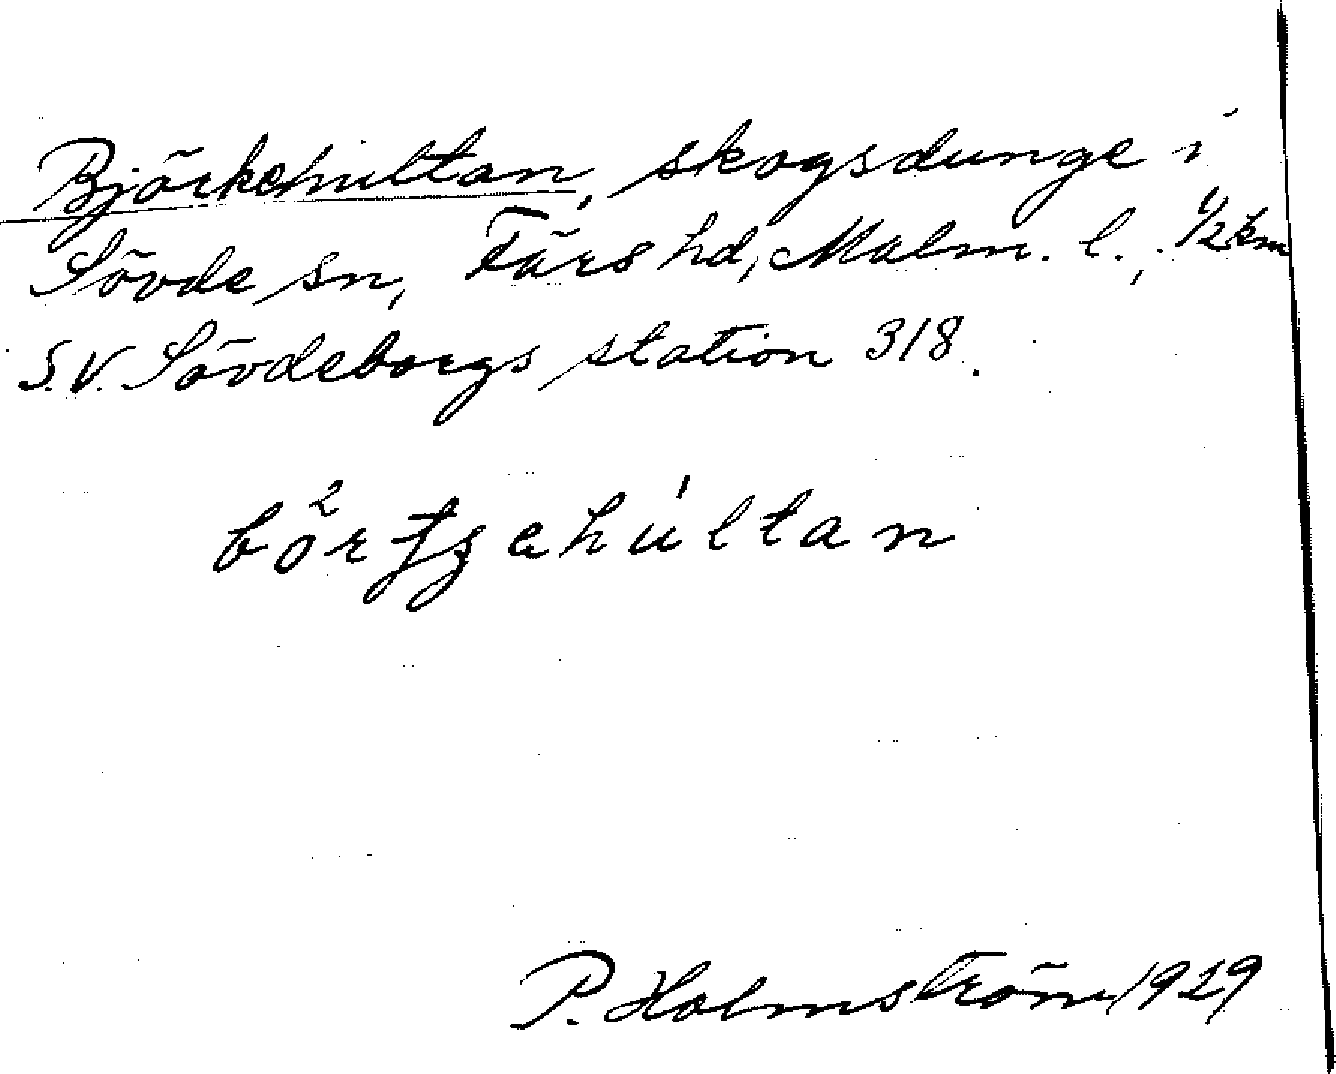 Björkehultan, skogsdunge i
Sövde sn, Färs hd, Malm. l., 1/2 km
S.V. Sövdeborgs station 318.
P. Holmström 1929